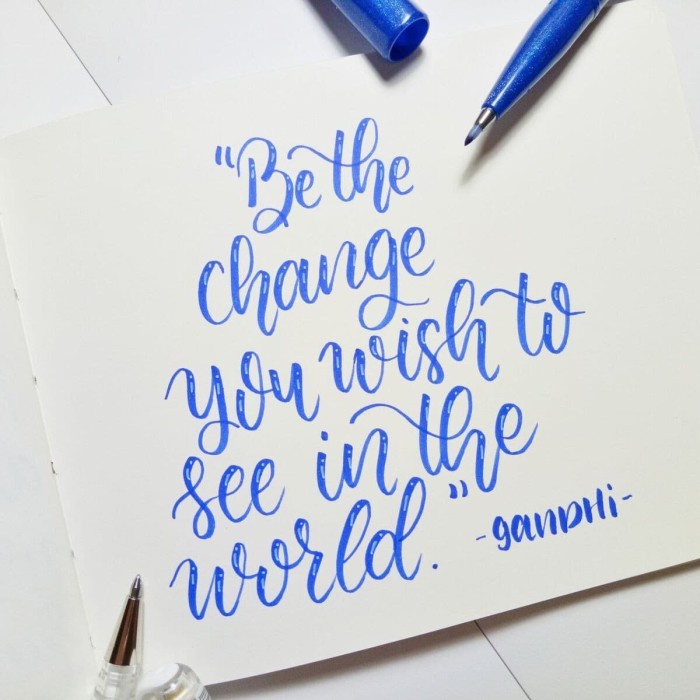 "Be the
change
you wish to
see in the
world."
-gandhi-